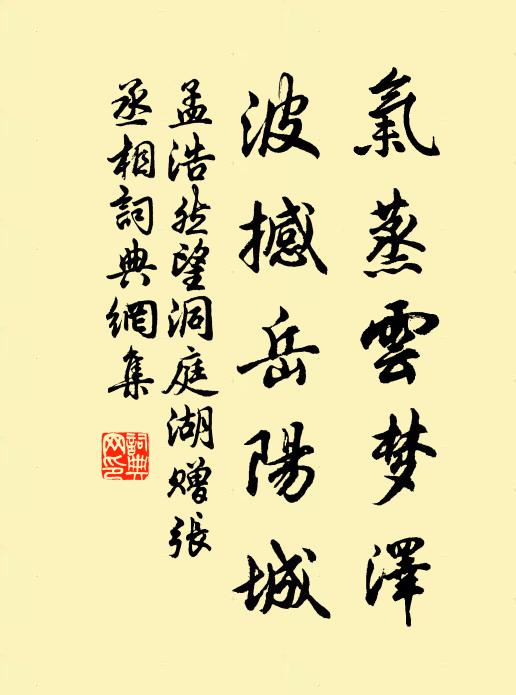 氣蒸雲梦澤
波撼岳陽城
孟浩然望洞庭湖赠張
丞相詞典網集
詞典网印